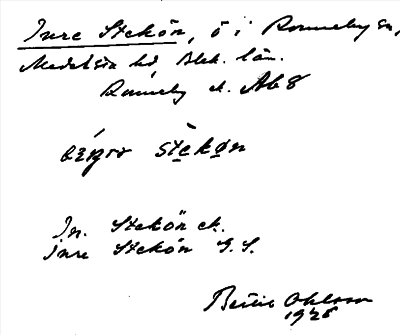 Inre Stekön, ö i Ronneby sn,
Medelsta hd, Blek. län.
Ronneby ek. Ab8
stekøn
In. Stekön ek.
Inre Stekön G.S.
Bertil Ohlsson
1928